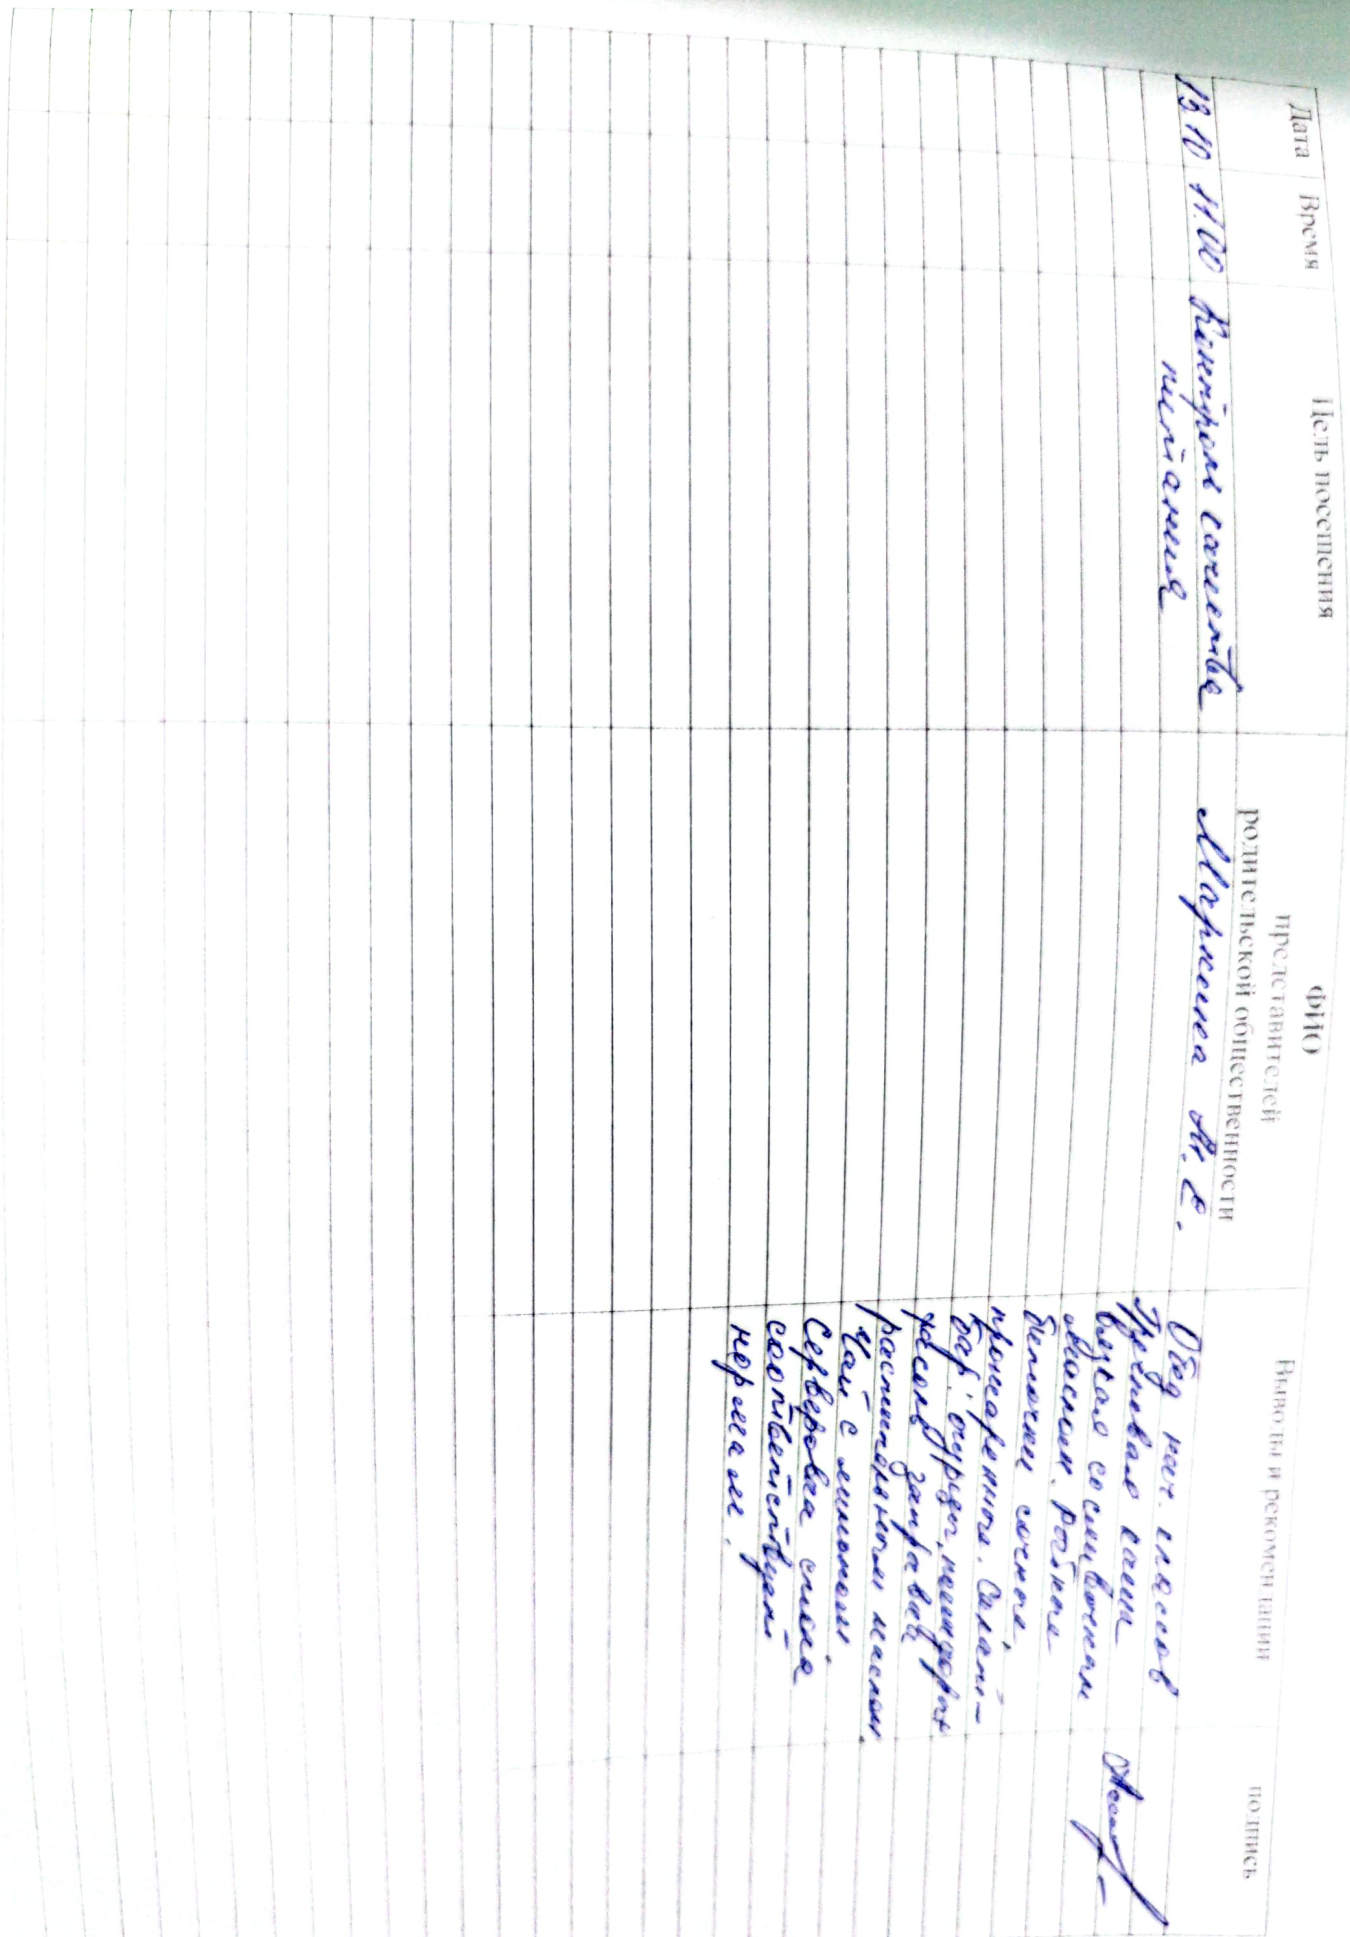 Дата
Время
Цель посещения
ФИО
представителей
родительской общественности
Выводы и рекомендации
подпись
13.10
11.00
Контроль качества
питания
Маркина
Обед нач. классов
Гречневая каша
вязкая со сливочным
маслом. Рыбные
биточки сочные,
прожаренные. Салат-
бар: огурцы,
фасоль заправ
растительным маслом.
Чай с лимоном
Сервировка стола
соответствует
нормам.